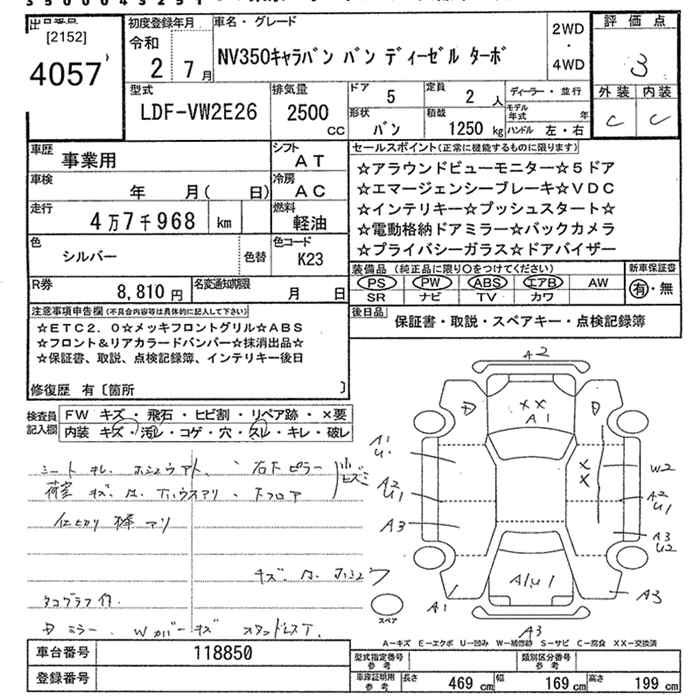 出品番号
[2152]
4057
初度登録年月
令和
2 7月
車名・グレード
NV350キャラバン バン ディーゼル ターボ
2WD
・
4WD
評価点
3
外装 内装
C C
型式
LDF-VW2E26
排気量
2500
cc
ドア
5
定員
2人
形状
バン
積載
1250 kg
ディーラー・並行
モデル年式 年
ハンドル 左・右
車歴
事業用
シフト
AT
車検
年 月( 日)
冷房
AC
走行
4万7千968 km
燃料
軽油
色
シルバー
色替
色コード
K23
セールスポイント(正常に機能するものに限ります)
☆アラウンドビューモニター☆5ドア
☆エマージェンシーブレーキ☆VDC
☆インテリキー☆プッシュスタート☆
☆電動格納ドアミラー☆バックカメラ
☆プライバシーガラス☆ドアバイザー
装備品 (純正品に限り〇をつけてください)
PS PW ABS エアB AW
SR ナビ TV カワ
新車保証書
有・無
R券
8,810 円
名変通知期限
月 日
後日品
保証書・取説・スペアキー・点検記録簿
注意事項申告欄(不具合内容等は具体的に記入して下さい)
☆ETC2.0☆メッキフロントグリル☆ABS
☆フロント&リアカラードバンパー☆抹消出品☆
☆保証書、取説、点検記録簿、インテリキー後日
修復歴 有〔箇所 〕
検査員
記入欄
FW キズ・飛石・ヒビ割・リペア跡・×要
内装 キズ・汚レ・コゲ・穴・スレ・キレ・破レ
シート キレ
荷室 キズ
仕切り 棒 アリ
タコグラフ付
ミラー、Wカバーキズ
A2
XX
A1
A1
U1
A2
U1
A3
A1
XX
W2
A2
U1
A3
U2
A3
A1U1
A3
スペア
A−キズ E−エクボ U−凹み W−補修跡 S−サビ C−腐食 XX−交換済
車台番号
118850
登録番号
型式指定番号
参考
類別区分番号
参考
車庫証明用
参考
長さ 469 cm 幅 169 cm 高さ 199 cm